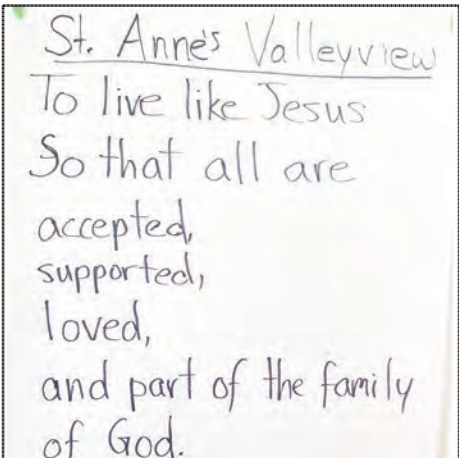 St. Anne's Valleyview
To live like Jesus
So that all are
accepted,
supported,
loved,
and part of the family
of God.